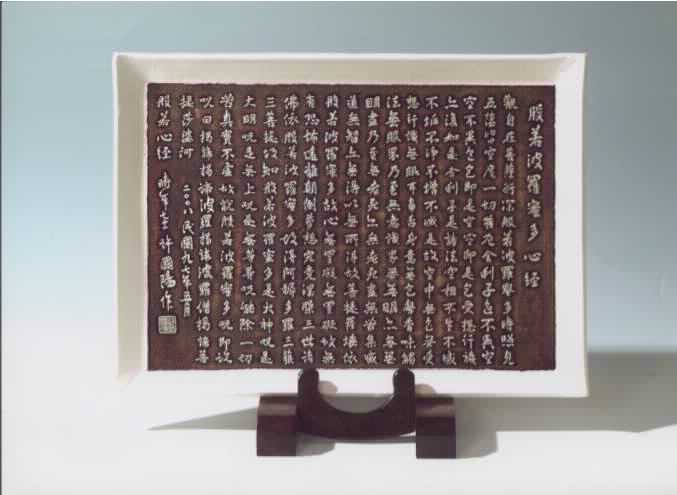 般若波羅蜜多心經
觀自在菩薩行深般若波羅蜜多時照見
五蘊皆空度一切苦厄舍利子色不異空
空不異色色即是空空即是色受想行識
亦復如是舍利子是諸法空相不生不滅
不垢不淨不增不減是故空中無色無受
想行識無眼耳鼻舌身意無色聲香味觸
法無眼界乃至無意識界無無明亦無無
明盡乃至無老死亦無老死盡無苦集滅
道無智亦無得以無所得故菩提薩埵依
般若波羅蜜多故心無罣礙無罣礙故無
有恐怖遠離顛倒夢想究竟涅槃三世諸
佛依般若波羅蜜多故得阿耨多羅三藐
三菩提故知般若波羅蜜多是大神咒是
大明咒是無上咒是無等等咒能除一切
苦真實不虛故說般若波羅蜜多咒即說
咒曰揭諦揭諦波羅揭諦波羅僧揭諦菩
提莎婆訶 二〇〇八民國九七年五月
般若心經 許國陽作